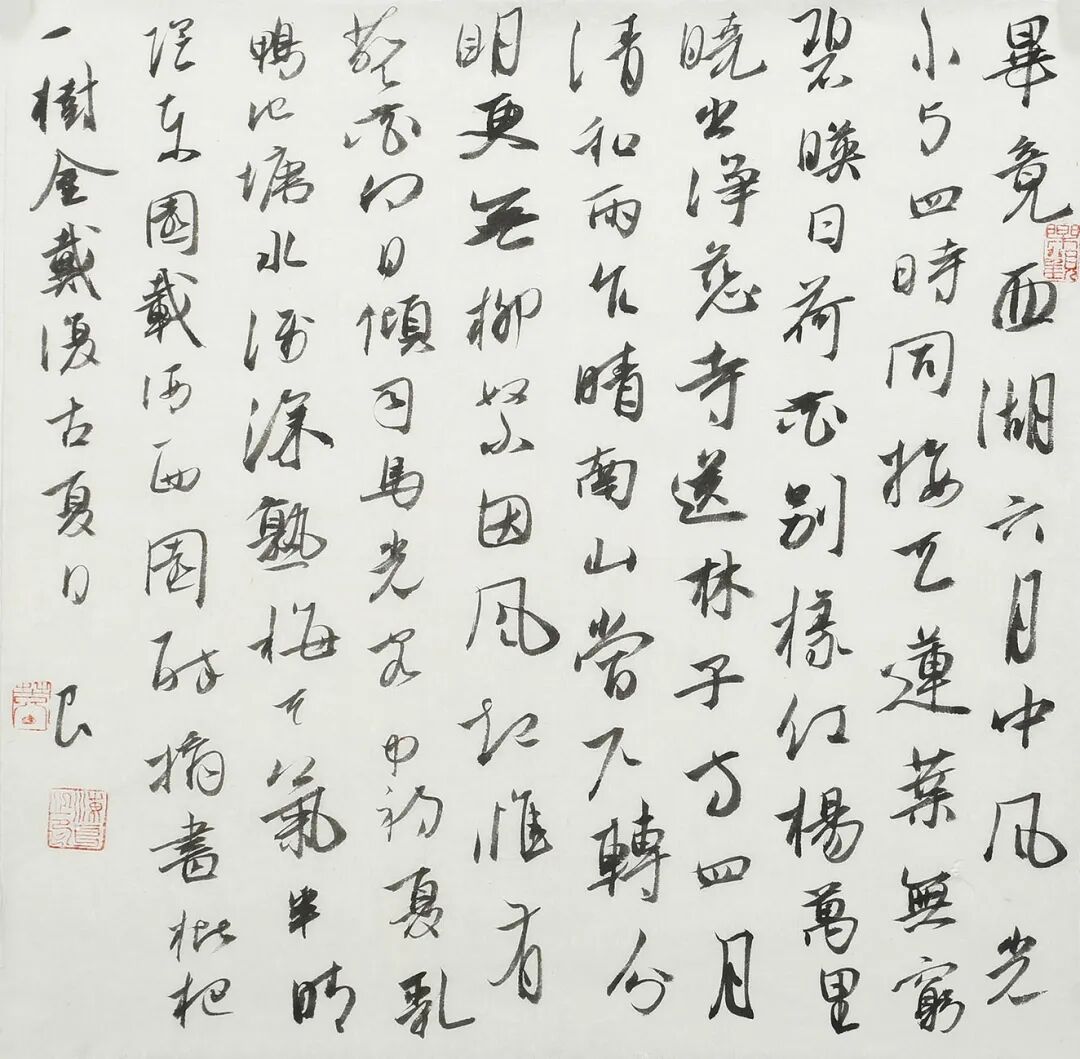 畢竟西湖六月中風光
不与四時同接天蓮葉無窮
碧暎日荷花别樣红楊萬里
曉出淨慈寺送林子方四月
清和雨乍晴南山當户轉分
明更無柳絮因風起惟有
葵花向日傾司馬光客中初夏乳
鴨池塘水淺深熟梅天氣半晴
陰東園載酒西園醉摘盡枇杷
一樹金戴復古夏日